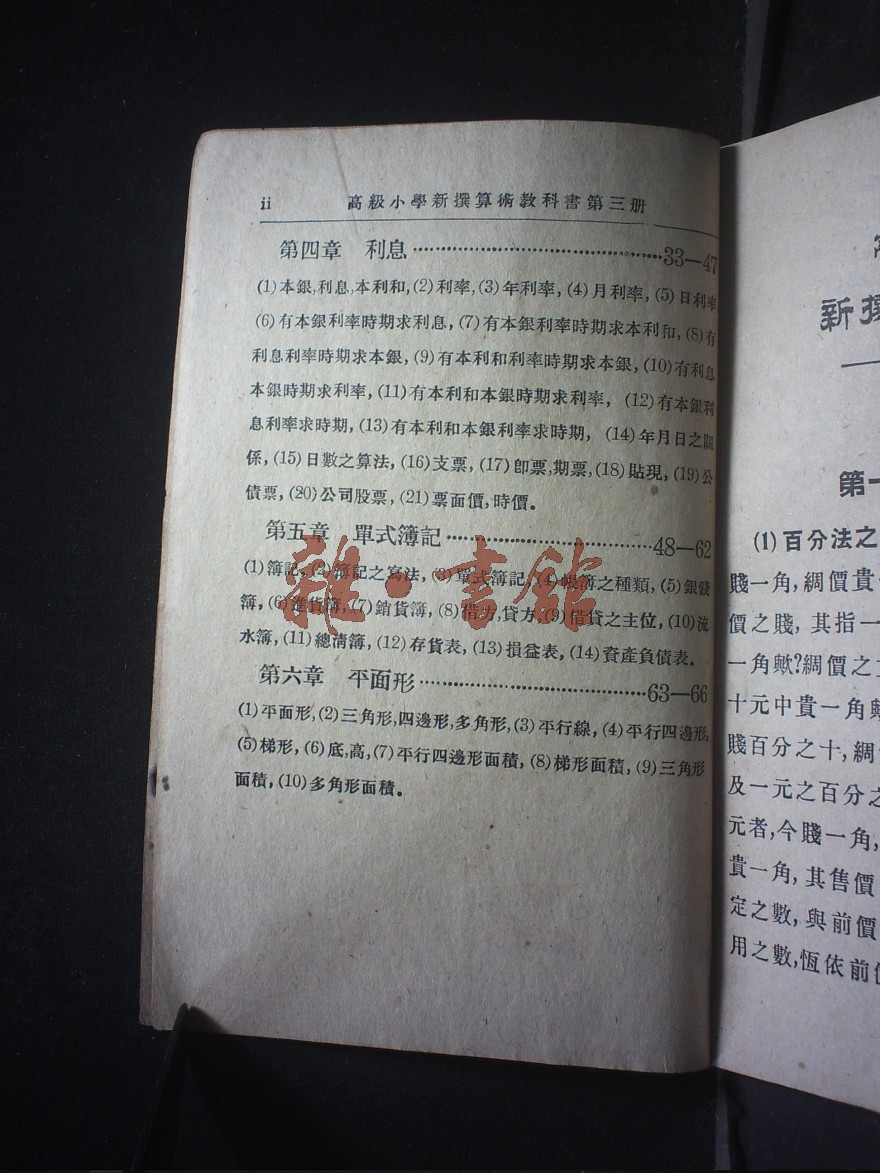 ii 高級小學新撰算術教科書第三册
第四章 利息……………………33—47
(1)本銀,利息,本利和,(2)利率,(3)年利率,(4)月利率,(5)日利率
(6)有本銀利率時期求利息,(7)有本銀利率時期求本利和,(8)有
利息利率時期求本銀,(9)有本利和利率時期求本銀,(10)有利息
本銀時期求利率,(11)有本利和本銀時期求利率,(12)有本銀利
息利率求時期,(13)有本利和本銀利率求時期,(14)年月日之關
係,(15)日數之算法,(16)支票,(17)卽票,期票,(18)貼現,(19)公
債票,(20)公司股票,(21)票面價,時價。
第五章 單式簿記……………………48—62
(1)簿記,(2)簿記之寫法,(3)單式簿記,(4)帳簿之種類,(5)銀錢
簿,(6)進貨簿,(7)銷貨簿,(8)借方,貸方,(9)借貸之主位,(10)流
水簿,(11)總淸簿,(12)存貨表,(13)損益表,(14)資產負債表。
第六章 平面形……………………63—66
(1)平面形,(2)三角形,四邊形,多角形,(3)平行線,(4)平行四邊形,
(5)梯形,(6)底,高,(7)平行四邊形面積,(8)梯形面積,(9)三角形
面積,(10)多角形面積。
雜·書館
新撰
第一
(1)百分法之
賤一角,綢價貴
價之賤,其指一
一角歟?綢價之
十元中貴一角
賤百分之十,綢
及一元之百分之
元者,今賤一角,
貴一角,其售價
定之數,與前價
用之數,恆依前